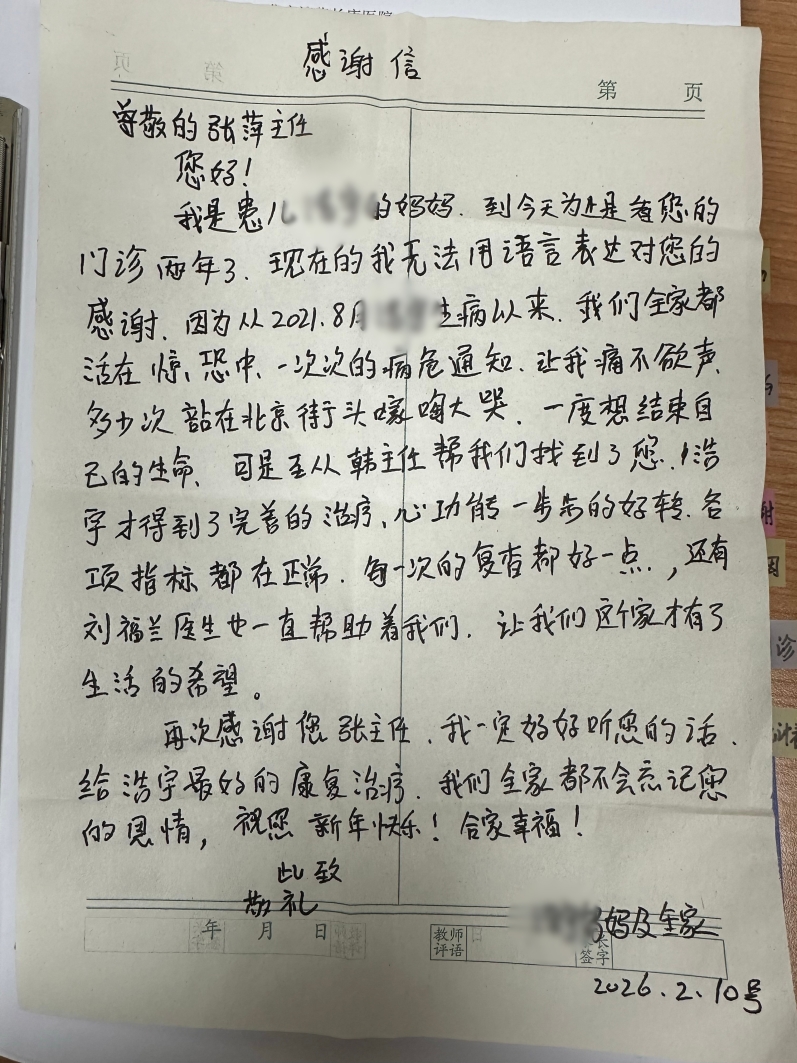 感谢信
第 页
尊敬的张萍主任
您好！
我是患儿 的妈妈. 到今天为止是看您的
门诊两年了. 现在的我无法用语言表达对您的
感谢. 因为从2021.8月 生病以来. 我们全家都
活在惊恐中、一次次的病危通知. 让我痛不欲声.
多少次站在北京街头嚎啕大哭. 一度想结束自
己的生命、可是至从韩主任帮我们找到了您. 浩
宇才得到了完善的治疗、心功能一步步的好转. 各
项指标都在正常. 每一次的复查都好一点. , 还有
刘福兰医生也一直帮助着我们. 让我们这个家才有了
生活的希望。
再次感谢您张主任. 我一定好好听您的话.
给浩宇最好的康复治疗. 我们全家都不会忘记您
的恩情, 祝您新年快乐! 合家幸福!
此致
敬礼
妈及全家
年 月 日
教师评语
长签字
2026.2.10号
诊